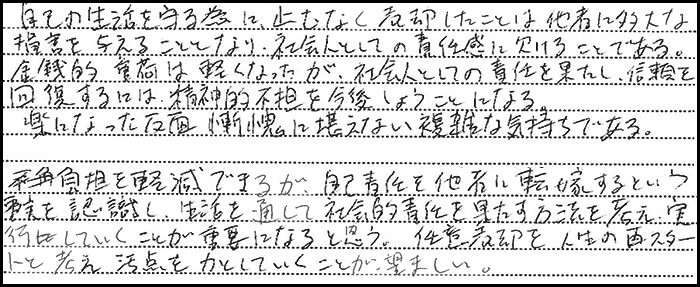 自己の生活を守る為に、止むなく売却したことは他者に多大な
損害を与えることとなり、社会人としての責任感に欠けることである。
金銭的 負荷は軽くなったが、社会人としての責任を果たし、信頼を
回復するには、精神的不担を今後しょうことになる。
楽になった反面 慚愧に堪えない複雑な気持ちである。
負担を軽減できるが、自己責任を他者に転嫁するという
事実を認識し、生活を通して社会的責任を果たす方法を考え、実
行していくことが重要になると思う。任意売却を人生の再スター
トと考え 汚点を力としていくことが望ましい。